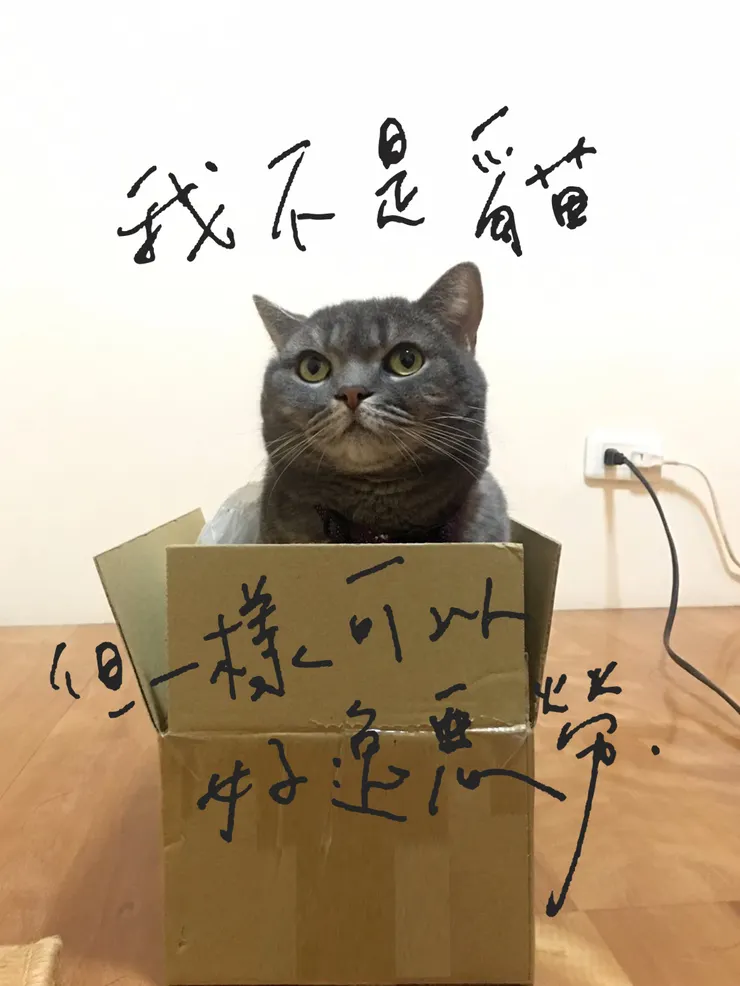 我不是貓
但一樣可以
好逸惡勞.